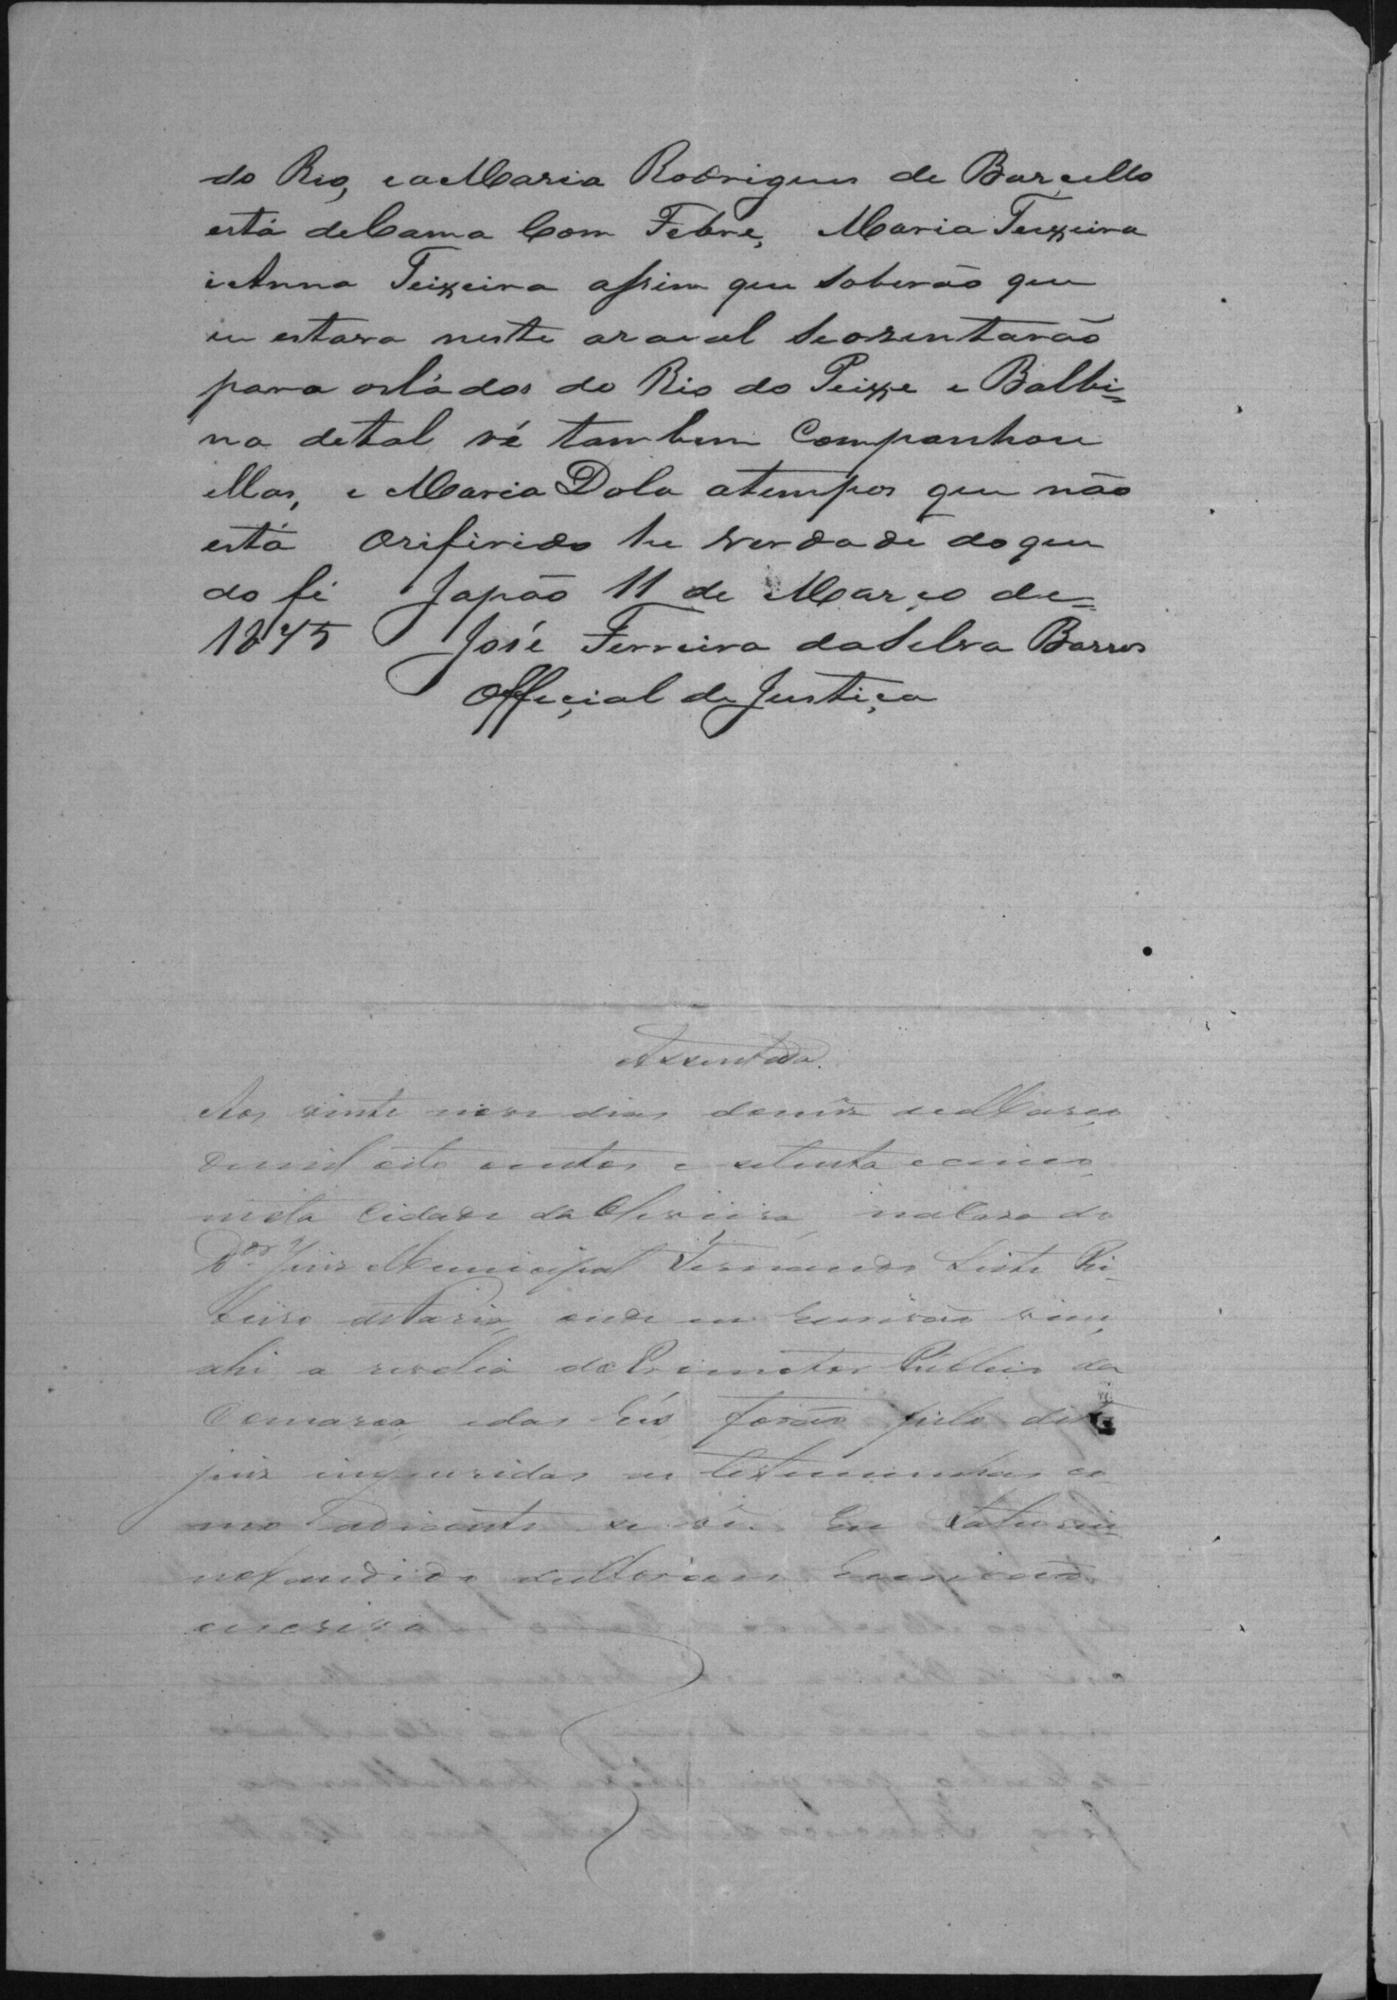 do Rio, e a Maria Rodrigues de Barcello
está de Cama Com Febre, Maria Teixeira
e Anna Teixeira assim que soberão que
eu estava neste araial se ozentarão
para os lados do Rio do Peixe e Balbi=
na de tal vé tambem Companhou
ellas, e Maria Dola a tempos que não
está O rifirido he verdade do que
do fé Japão 11 de Março de=
1875 José Ferreira da Selva Barros
Offiçial de Justiça
Assentada.
Aos vinte nove dias do mez de Março
de mil oito centos e setenta e cinco
nesta Cidade da Oliveira, na Casa do
Dor. Juiz Municipal Fernando Leite Ri-
beiro de Faria, onde eu Escrivão vim,
ahi a revelia do Promotor Publico da
Comarca e das Rés forão pelo dito
juiz inqueridas as testemunhas co
mo adiante se vê. Eu Saturni
no Candido de Escrivão
escrivi